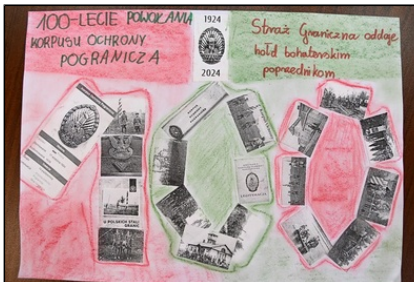 100-LECIE POWOŁANIA
KORPUSU OCHRONY
POGRANICZA
1924
2024
Straż Graniczna oddaje
hołd bohaterskim
poprzednikom
U POLSKICH STALI
GRANIC